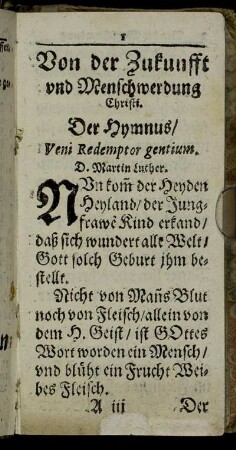 1
Von der Zukunfft
vnd Menschwerdung
Christi.
Der Hymnus/
Veni Redemptor gentium.
D. Martin Luther.
NVn kom̃ der Heyden
Heyland/ der Jung-
frawẽ Kind erkand/
daß sich wundert alle Welt/
Gott solch Geburt jhm be-
stellt.
Nicht von Mañs Blut
noch von Fleisch/ allein von
dem H. Geist/ ist GOttes
Wort worden ein Mensch/
vnd blüht ein Frucht Wei-
bes Fleisch.
A iij Der